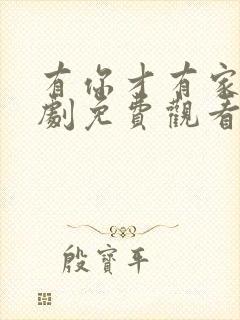 有你才有家
劇免費觀看
殷寶平